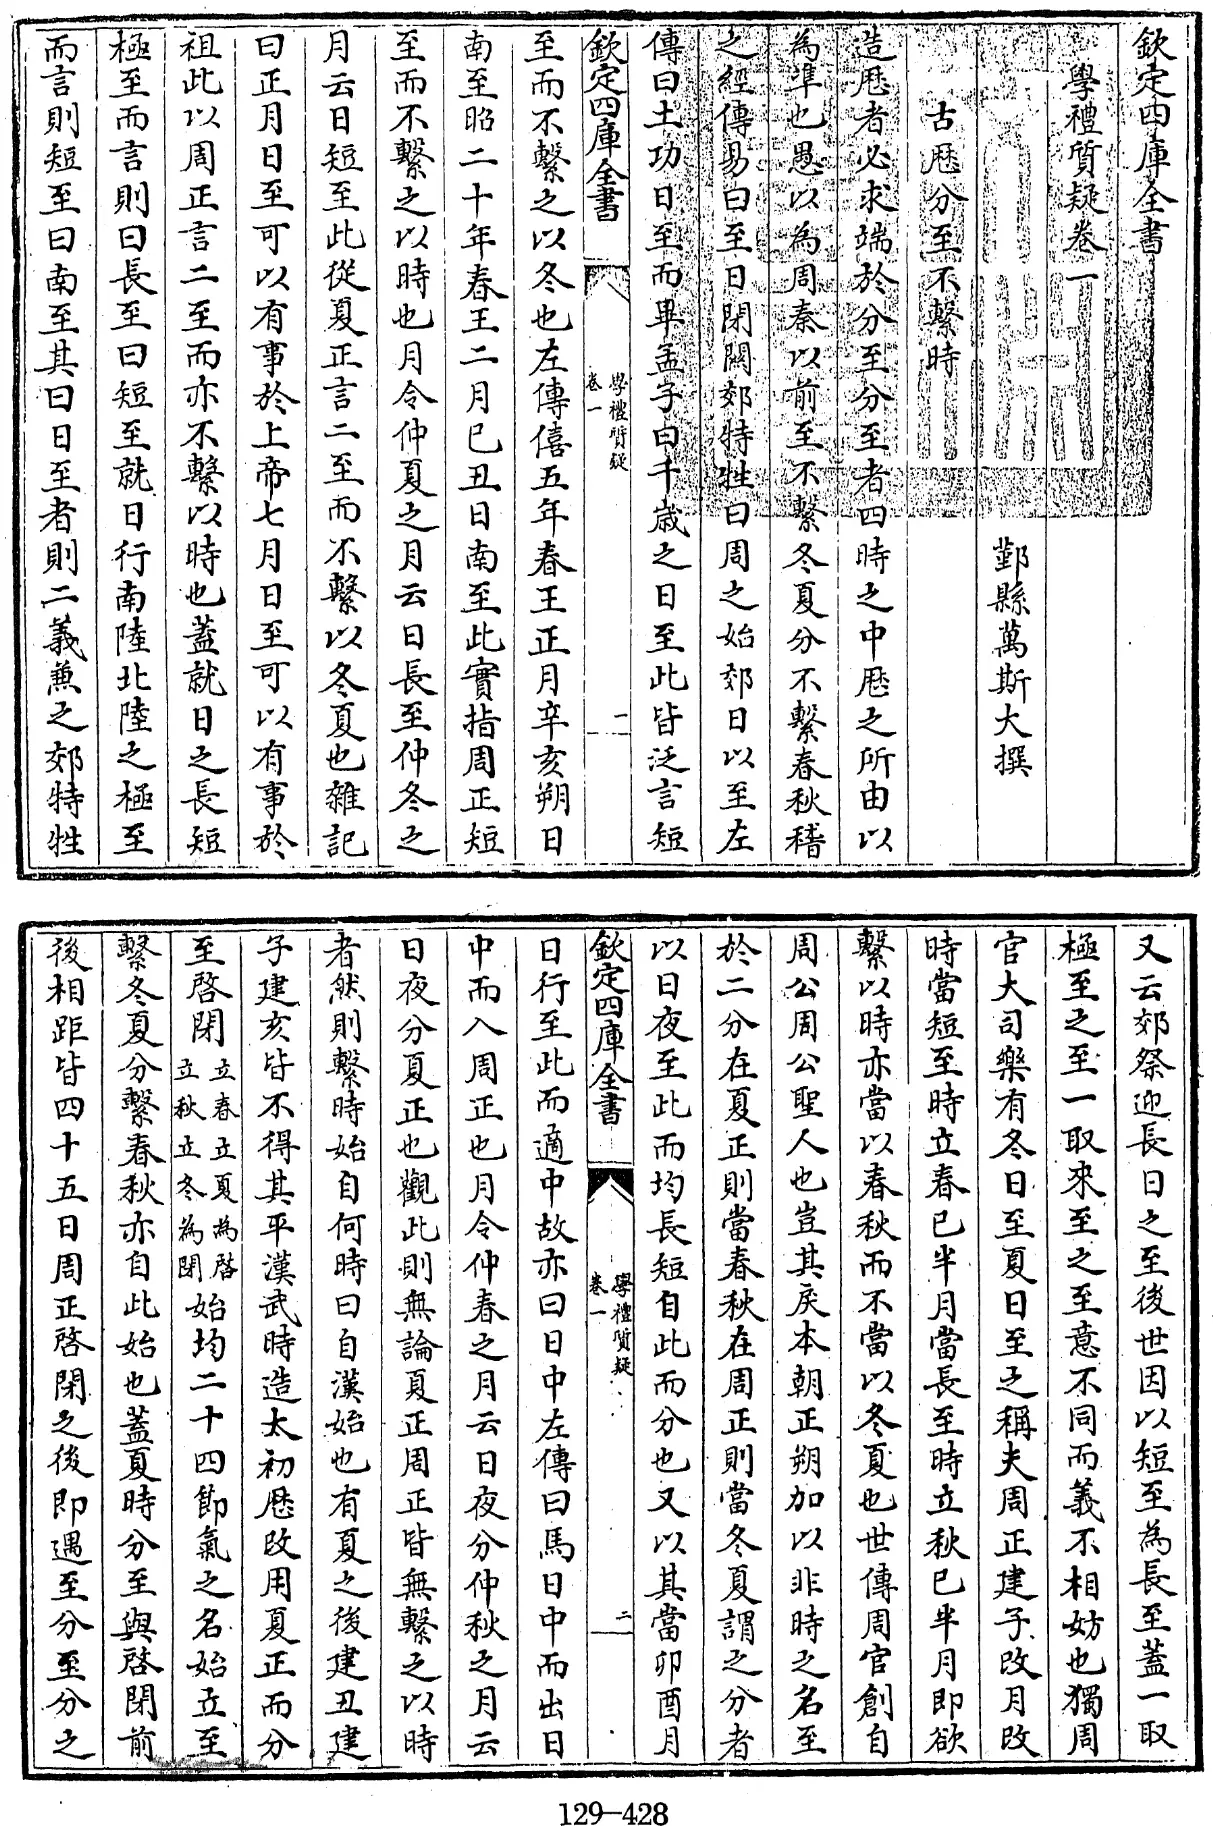 欽定四庫全書
學禮質疑卷一
鄞縣萬斯大撰
古厯分至不繫時
造厯者必求端於分至分至者四時之中厯之所由以
為準也愚以為周秦以前至不繫冬夏分不繫春秋稽
之經傳易曰至日閉關郊特牲曰周之始郊日以至左
傳曰土功日至而畢孟子曰千歲之日至此皆泛言短
欽定四庫全書
學禮質疑
卷一
一
至而不繫之以冬也左傳僖五年春王正月辛亥朔日
南至昭二十年春王二月已丑日南至此實指周正短
至而不繫之以時也月令仲夏之月云日長至仲冬之
月云日短至此從夏正言二至而不繫以冬夏也雜記
曰正月日至可以有事於上帝七月日至可以有事於
祖此以周正言二至而亦不繫以時也蓋就日之長短
極至而言則曰長至曰短至就日行南陸北陸之極至
而言則短至曰南至其曰日至者則二義兼之郊特牲
又云郊祭迎長日之至後世因以短至為長至蓋一取
極至之至一取來至之至意不同而義不相妨也獨周
官大司樂有冬日至夏日至之稱夫周正建子改月改
時當短至時立春已半月當長至時立秋已半月即欲
繫以時亦當以春秋而不當以冬夏也世傳周官創自
周公周公聖人也豈其戾本朝正朔加以非時之名至
於二分在夏正則當春秋在周正則當冬夏謂之分者
以日夜至此而均長短自此而分也又以其當卯酉月
欽定四庫全書
學禮質疑
卷一
二
日行至此而適中故亦曰日中左傳曰馬日中而出日
中而入周正也月令仲春之月云日夜分仲秋之月云
日夜分夏正也觀此則無論夏正周正皆無繫之以時
者然則繫時始自何時曰自漢始也有夏之後建丑建
子建亥皆不得其平漢武時造太初厯改用夏正而分
至啓閉立春立夏為啓立秋立冬為閉始均二十四節氣之名始立至
繫冬夏分繫春秋亦自此始也蓋夏時分至與啓閉前
後相距皆四十五日周正啓閉之後即遇至分至分之
129-428